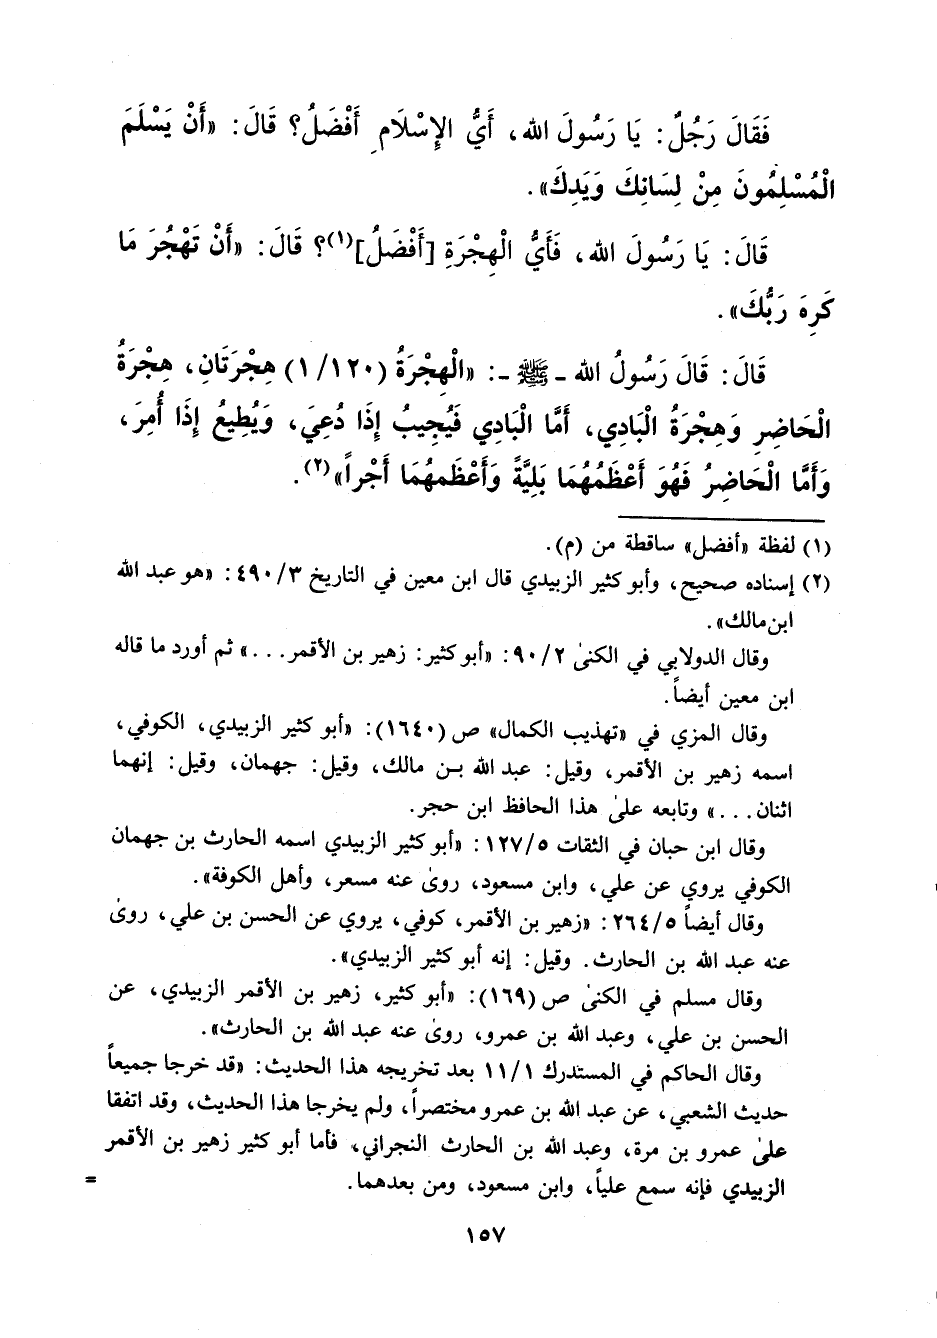 فَقَالَ رَجُلٌ: يَا رَسُولَ الله، أَيُّ الإِسْلَامِ أَفْضَلُ؟ قَالَ: «أَنْ يَسْلَمَ
الْمُسْلِمُونَ مِنْ لِسَانِكَ وَيَدِكَ».
قَالَ: يَا رَسُولَ الله، فَأَيُّ الْهِجْرَةِ [أَفْضَلُ](١)؟ قَالَ: «أَنْ تَهْجُرَ مَا
كَرِهَ رَبُّكَ».
قَالَ: قَالَ رَسُولُ الله ـ ﷺ ـ: «الْهِجْرَةُ (١/١٢٠) هِجْرَتَانِ، هِجْرَةُ
الْحَاضِرِ وَهِجْرَةُ الْبَادِي، أَمَّا الْبَادِي فَيُجِيبُ إِذَا دُعِيَ، وَيُطِيعُ إِذَا أُمِرَ،
وَأَمَّا الْحَاضِرُ فَهُوَ أَعْظَمُهُمَا بَلِيَّةً وَأَعْظَمهُمَا أَجْراً»(٢).
(١) لفظة «أفضل» ساقطة من (م).
(٢) إسناده صحيح، وأبو كثير الزبيدي قال ابن معين في التاريخ ٣/٤٩٠: «هو عبد الله
ابن مالك».
وقال الدولابي في الكنىٰ ٢/٩٠: «أبو كثير: زهير بن الأقمر...» ثم أورد ما قاله
ابن معين أيضاً.
وقال المزي في «تهذيب الكمال» ص (١٦٤٠): «أبو كثير الزبيدي، الكوفي،
اسمه زهير بن الأقمر، وقيل: عبد الله بن مالك، وقيل: جهمان، وقيل: إنهما
اثنان...» وتابعه علىٰ هذا الحافظ ابن حجر.
وقال ابن حبان في الثقات ٥/١٢٧: «أبو كثير الزبيدي اسمه الحارث بن جهمان
الكوفي يروي عن علي، وابن مسعود، روىٰ عنه مسعر، وأهل الكوفة».
وقال أيضاً ٥/٢٦٤: «زهير بن الأقمر، كوفي، يروي عن الحسن بن علي، روىٰ
عنه عبد الله بن الحارث. وقيل: إنه أبو كثير الزبيدي».
وقال مسلم في الكنىٰ ص (١٦٩): «أبو كثير، زهير بن الأقمر الزبيدي، عن
الحسن بن علي، وعبد الله بن عمرو، روىٰ عنه عبد الله بن الحارث».
وقال الحاكم في المستدرك ١/١١ بعد تخريجه هذا الحديث: «قد خرجا جميعاً
حديث الشعبي، عن عبد الله بن عمرو مختصراً، ولم يخرجا هذا الحديث، وقد اتفقا
علىٰ عمرو بن مرة، وعبد الله بن الحارث النجراني، فأما أبو كثير زهير بن الأقمر
الزبيدي فإنه سمع علياً، وابن مسعود، ومن بعدهما. =
١٥٧